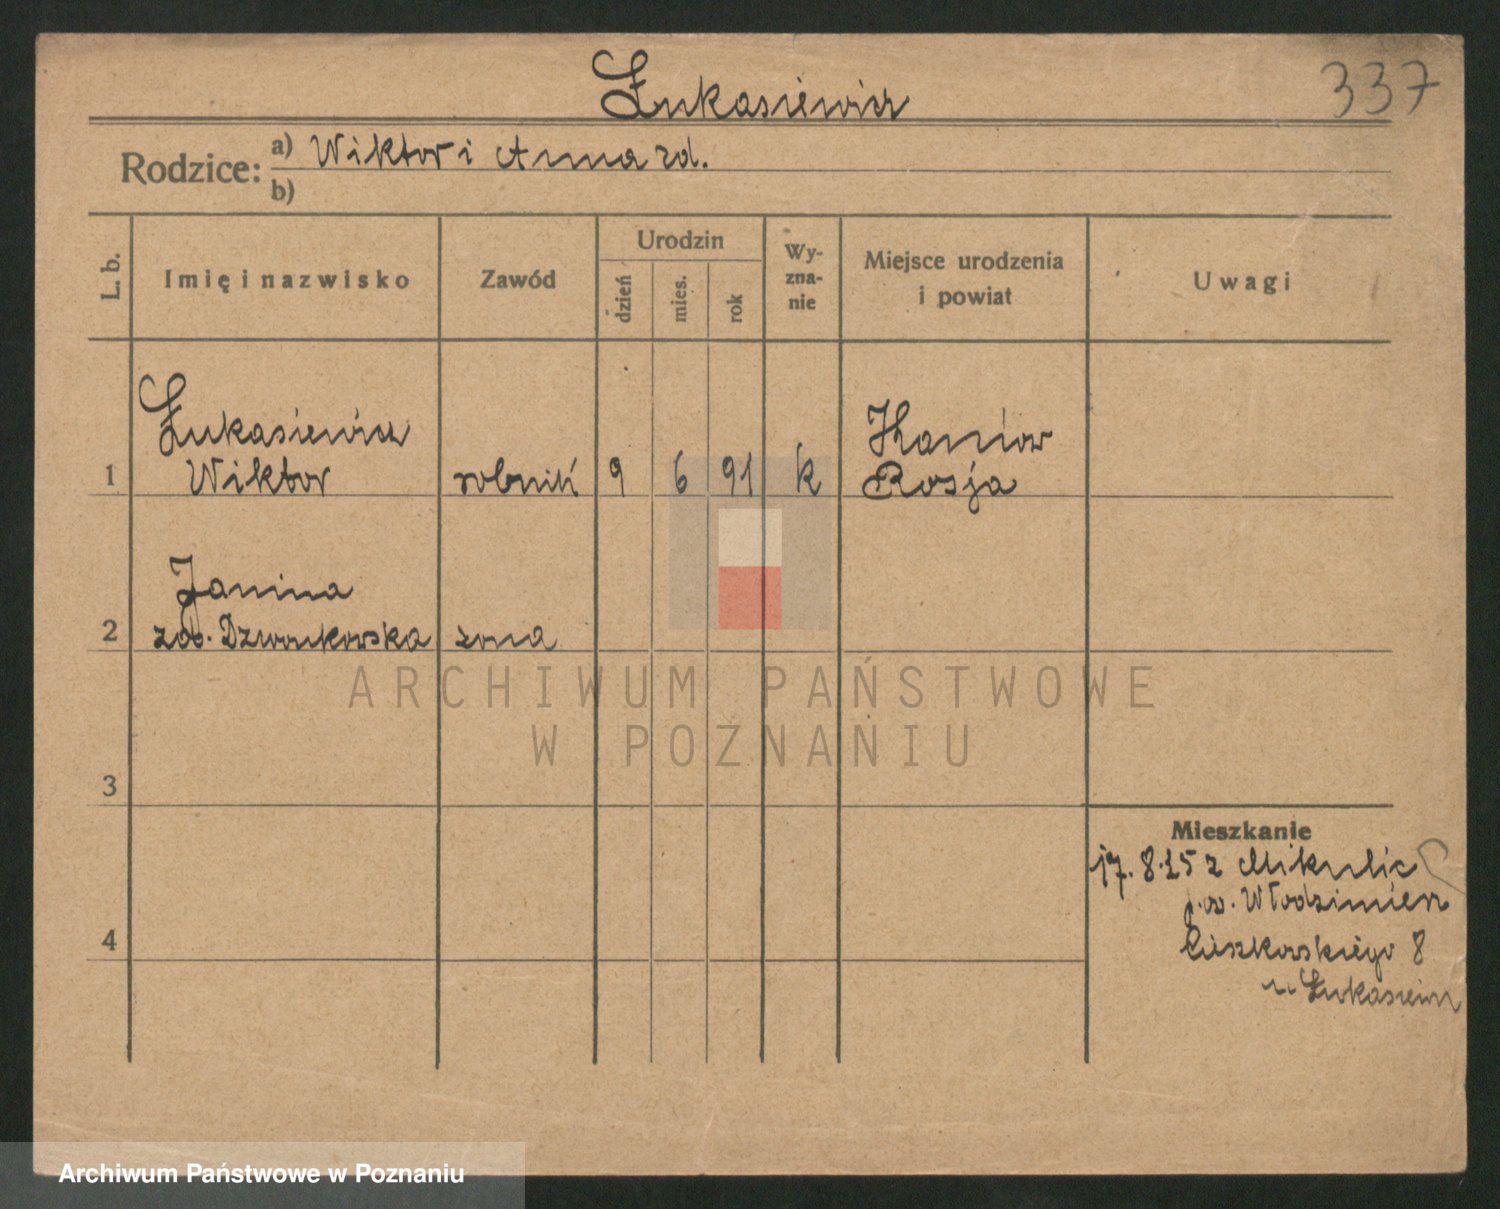 Łukasiewicz
337
Rodzice: a) Wiktor i Anna zd.
b)
L. b.
Imię i nazwisko
Zawód
Urodzin
dzień
mies.
rok
Wy-
zna-
nie
Miejsce urodzenia
i powiat
Uwagi
Łukasiewicz
Wiktor
1
robnik 9 6 91 k
Rosja
Janina
2 Dzwonkowska żona
3
4
Mieszkanie
17. 8. 25 z Mikulic
Włodzimierz
Cieszkowskiego 8
u Łukasiewicz
ARCHIWUM PAŃSTWOWE
W POZNANIU
Archiwum Państwowe w Poznaniu